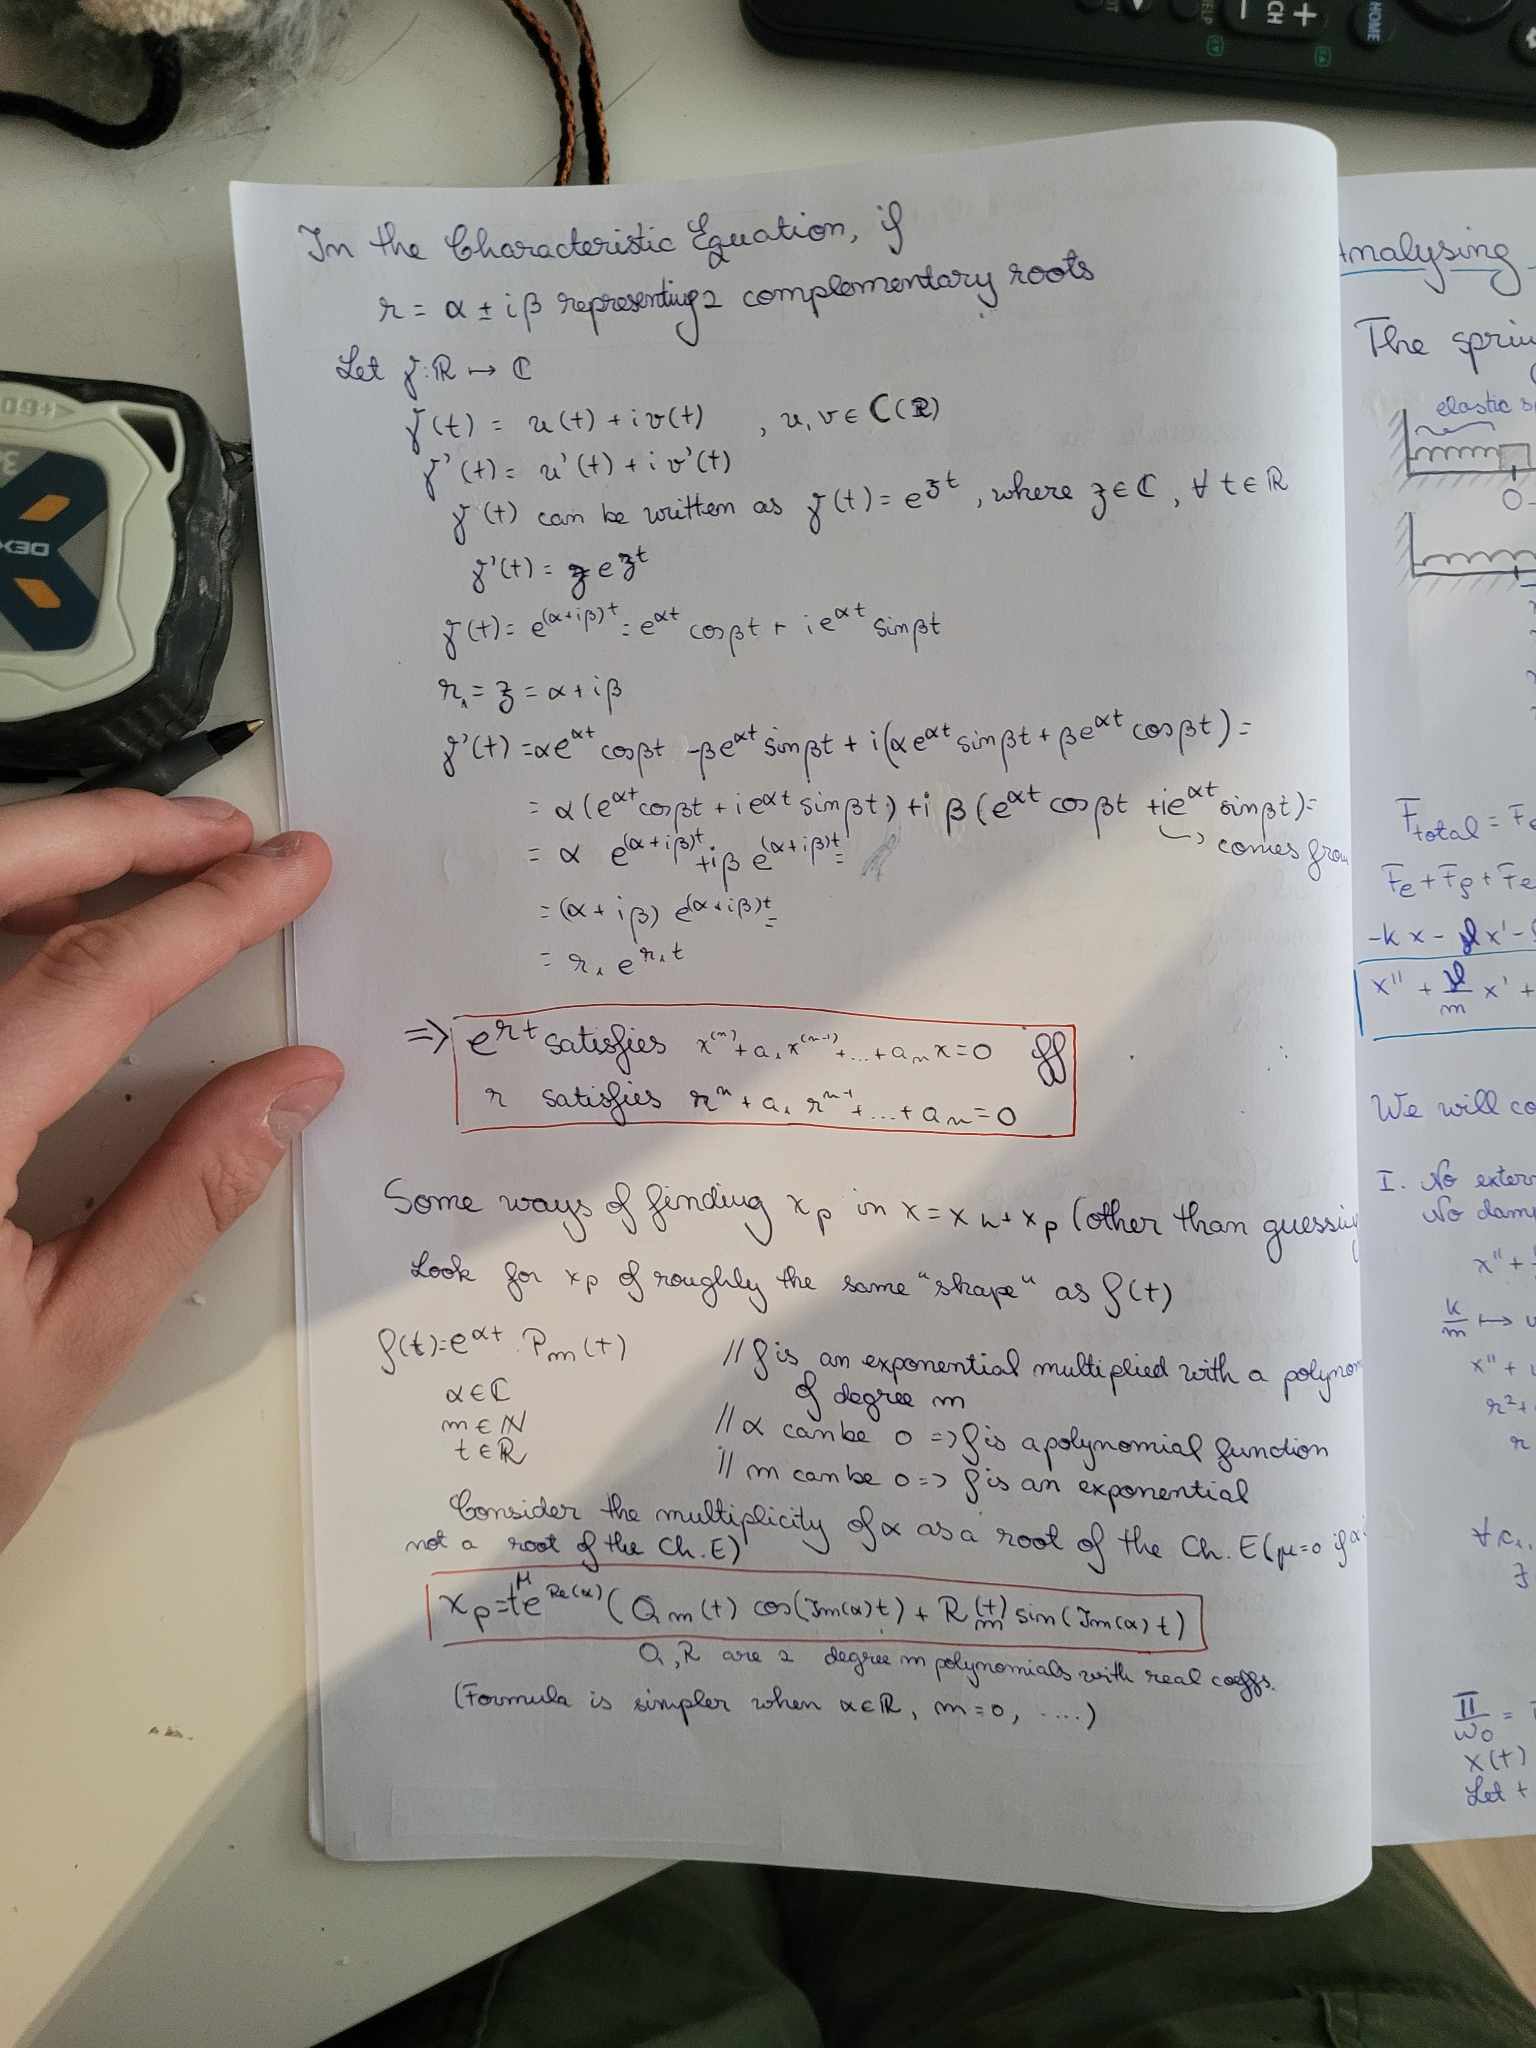 In the Characteristic Equation, if
r = α ± iβ representing 2 complementary roots
Let γ: ℝ ↦ ℂ
γ(t) = u(t) + i v(t) , u, v ∈ C(ℝ)
γ'(t) = u'(t) + i v'(t)
γ(t) can be written as γ(t) = e^{zt}, where z ∈ ℂ, ∀ t ∈ ℝ
γ'(t) = z e^{zt}
γ(t) = e^{(α+iβ)t} = e^{αt} cosβt + i e^{αt} sinβt
r₁ = z = α + iβ
γ'(t) = αe^{αt} cosβt - βe^{αt} sinβt + i(αe^{αt} sinβt + βe^{αt} cosβt) =
= α(e^{αt} cosβt + i e^{αt} sinβt) + i β(e^{αt} cosβt + ie^{αt} sinβt) =
comes from
= α e^{(α+iβ)t} + iβ e^{(α+iβ)t} =
= (α + iβ) e^{(α+iβ)t} =
= r₁ e^{r₁t}
=> e^{rt} satisfies x^{(n)} + a₁x^{(n-1)} + ... + aₙx = 0 iff
r satisfies rⁿ + a₁ r^{n-1} + ... + aₙ = 0
Some ways of finding x_p in x = x_h + x_p (other than guessing
Look for x_p of roughly the same "shape" as f(t)
f(t) = e^{αt} · P_m(t) // f is an exponential multiplied with a polynom
of degree m
α ∈ ℂ
m ∈ ℕ // α can be 0 => f is a polynomial function
t ∈ ℝ // m can be 0 => f is an exponential
Consider the multiplicity of α as a root of the Ch. E (μ=0 if α
not a root of the Ch.E)
x_p = t^μ e^{Re(α)} (Q_m(t) cos(Im(α)t) + R_m(t) sin(Im(α)t)
Q, R are 2 degree m polynomials with real coeffs.
(Formula is simpler when α∈ℝ, m=0, ....)
Analysing
The sprin
elastic s
0
F_total = F
F_e + F_f + F_e
-kx - γx' -
x'' + γ/m x' +
We will co
I. No extern
No damp
x'' +
k/m ↦
x'' +
r² +
r
∀ c₁,
∃
π/ω₀ =
x(t)
Let t
CH
+
HOME
HELP
DEX